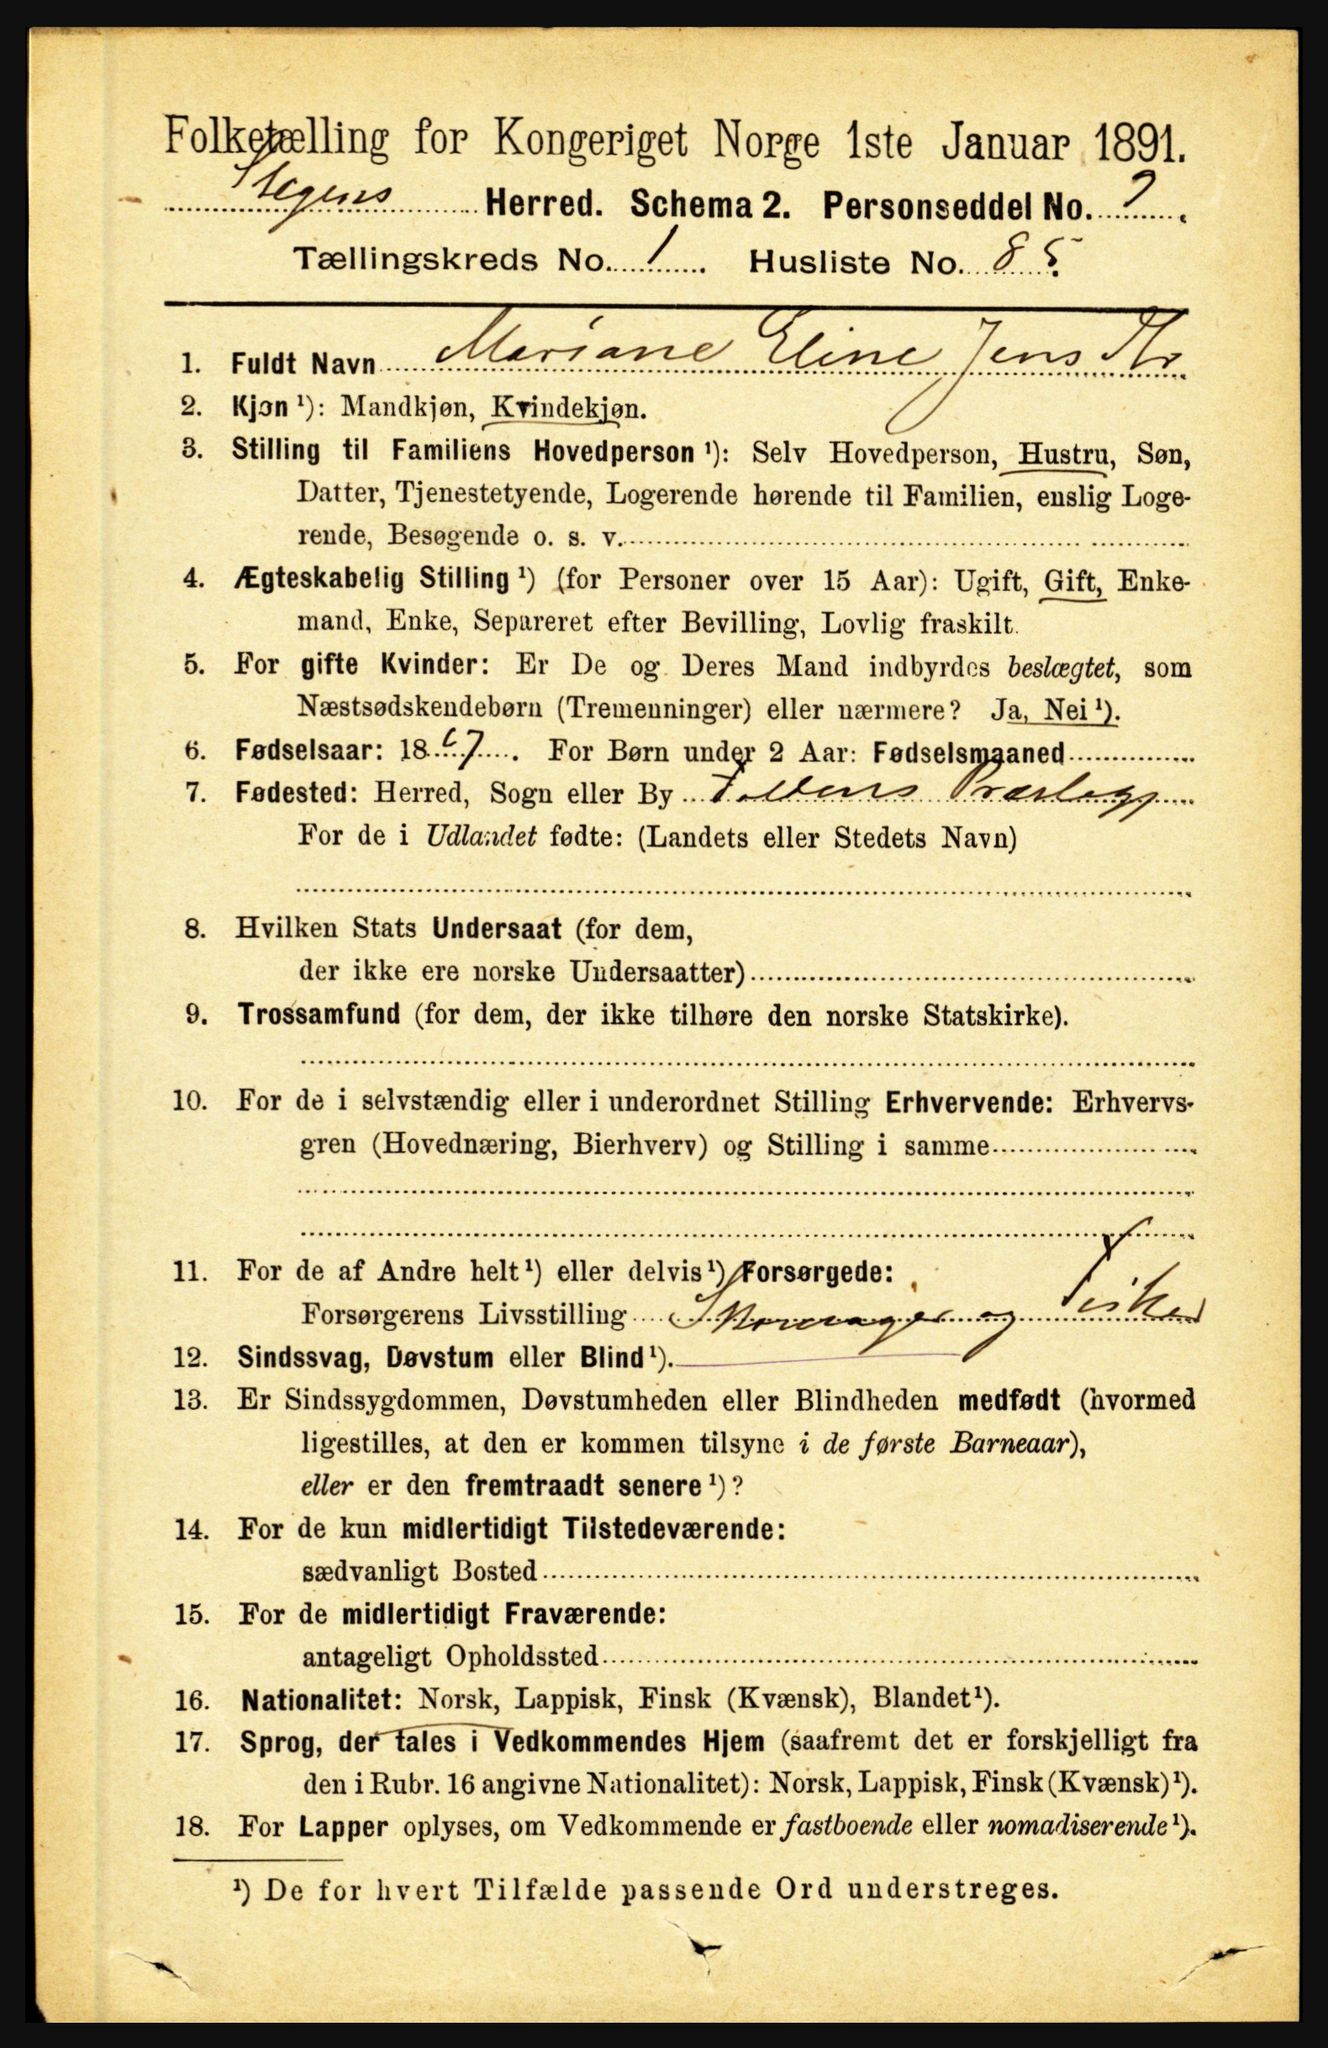 Folketælling for Kongeriget Norge 1ste Januar 1891.
Stegens Herred. Schema 2. Personseddel No. 2.
Tællingskreds No. 1 Husliste No. 85.
1. Fuldt Navn Mariane Eline Jens Dtr
2. Kjøn ¹): Mandkjøn, Kvindekjøn.
3. Stilling til Familiens Hovedperson ¹): Selv Hovedperson, Hustru, Søn,
Datter, Tjenestetyende, Logerende hørende til Familien, enslig Loge-
rende, Besøgende o. s. v.
4. Ægteskabelig Stilling ¹) (for Personer over 15 Aar): Ugift, Gift, Enke-
mand, Enke, Separeret efter Bevilling, Lovlig fraskilt.
5. For gifte Kvinder: Er De og Deres Mand indbyrdes beslægtet, som
Næstsødskendebørn (Tremenninger) eller nærmere? Ja, Nei ¹).
6. Fødselsaar: 1867. For Børn under 2 Aar: Fødselsmaaned
7. Fødested: Herred, Sogn eller By Foldens Præsteg
For de i Udlandet fødte: (Landets eller Stedets Navn)
8. Hvilken Stats Undersaat (for dem,
der ikke ere norske Undersaatter)
9. Trossamfund (for dem, der ikke tilhøre den norske Statskirke).
10. For de i selvstændig eller i underordnet Stilling Erhvervende: Erhvervs-
gren (Hovednæring, Bierhverv) og Stilling i samme
11. For de af Andre helt ¹) eller delvis ¹) Forsørgede:
Forsørgerens Livsstilling Skomager og Fisker
12. Sindssvag, Døvstum eller Blind ¹).
13. Er Sindssygdommen, Døvstumheden eller Blindheden medfødt (hvormed
ligestilles, at den er kommen tilsyne i de første Barneaar),
eller er den fremtraadt senere ¹)?
14. For de kun midlertidigt Tilstedeværende:
sædvanligt Bosted
15. For de midlertidigt Fraværende:
antageligt Opholdssted
16. Nationalitet: Norsk, Lappisk, Finsk (Kvænsk), Blandet ¹).
17. Sprog, der tales i Vedkommendes Hjem (saafremt det er forskjelligt fra
den i Rubr. 16 angivne Nationalitet): Norsk, Lappisk, Finsk (Kvænsk) ¹).
18. For Lapper oplyses, om Vedkommende er fastboende eller nomadiserende ¹).
¹) De for hvert Tilfælde passende Ord understreges.